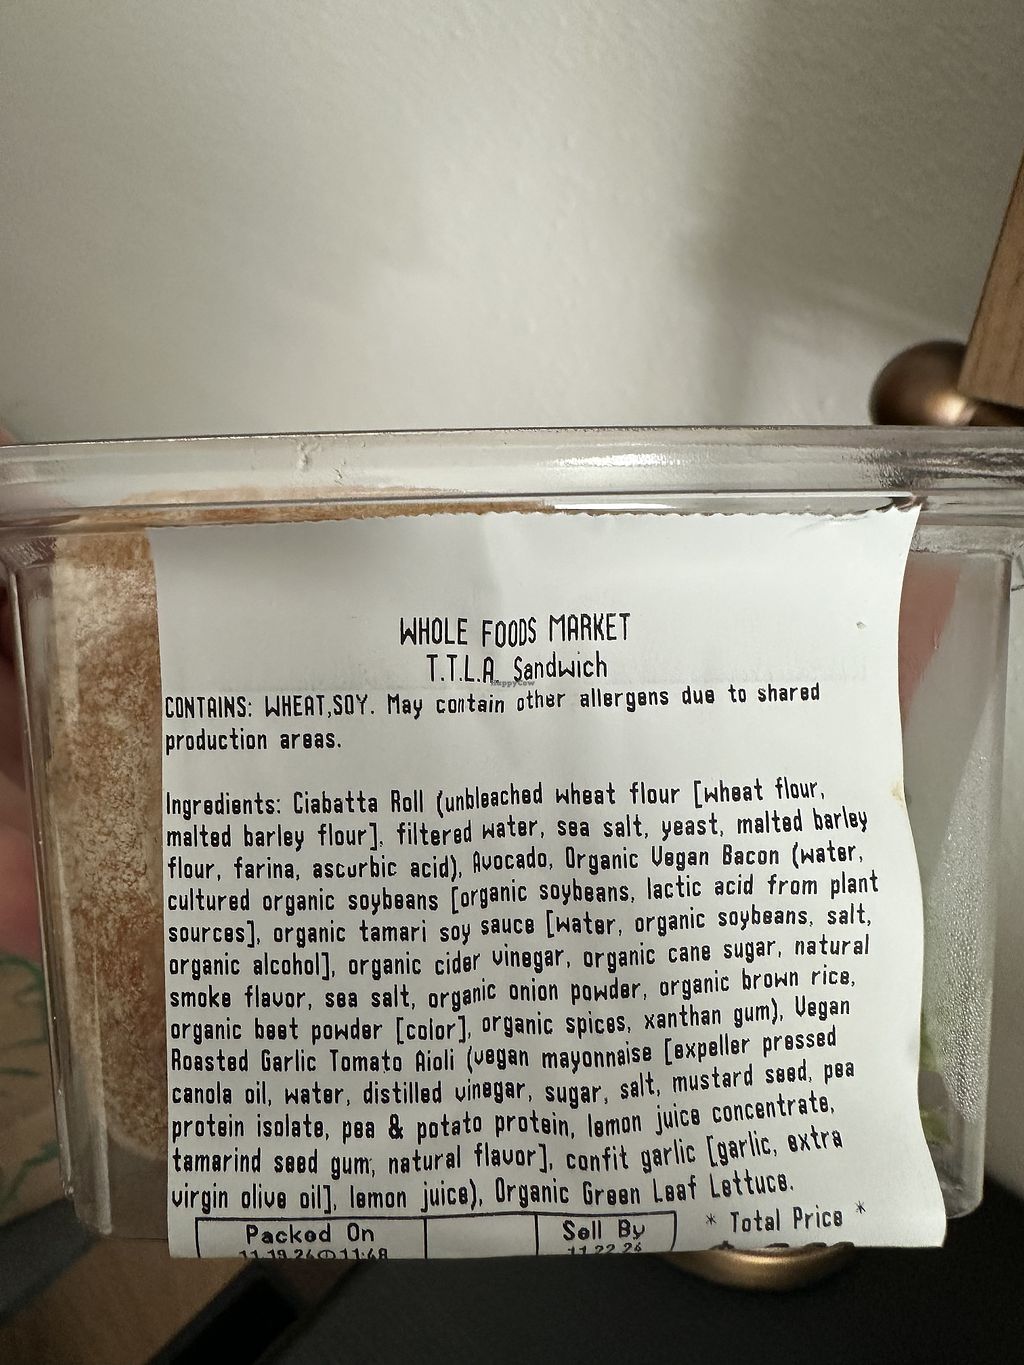 WHOLE FOODS MARKET
T.T.L.A. Sandwich
HappyCow
CONTAINS: WHEAT,SOY. May contain other allergens due to shared
production areas.
Ingredients: Ciabatta Roll (unbleached wheat flour [wheat flour,
malted barley flour], filtered water, sea salt, yeast, malted barley
flour, farina, ascorbic acid), Avocado, Organic Vegan Bacon (water,
cultured organic soybeans [organic soybeans, lactic acid from plant
sources], organic tamari soy sauce [water, organic soybeans, salt,
organic alcohol], organic cider vinegar, organic cane sugar, natural
smoke flavor, sea salt, organic onion powder, organic brown rice,
organic beet powder [color], organic spices, xanthan gum), Vegan
Roasted Garlic Tomato Aioli (vegan mayonnaise [expeller pressed
canola oil, water, distilled vinegar, sugar, salt, mustard seed, pea
protein isolate, pea & potato protein, lemon juice concentrate,
tamarind seed gum, natural flavor], confit garlic [garlic, extra
virgin olive oil], lemon juice), Organic Green Leaf Lettuce.
Packed On Sell By * Total Price *
11.19.24 11:48 11.22.24